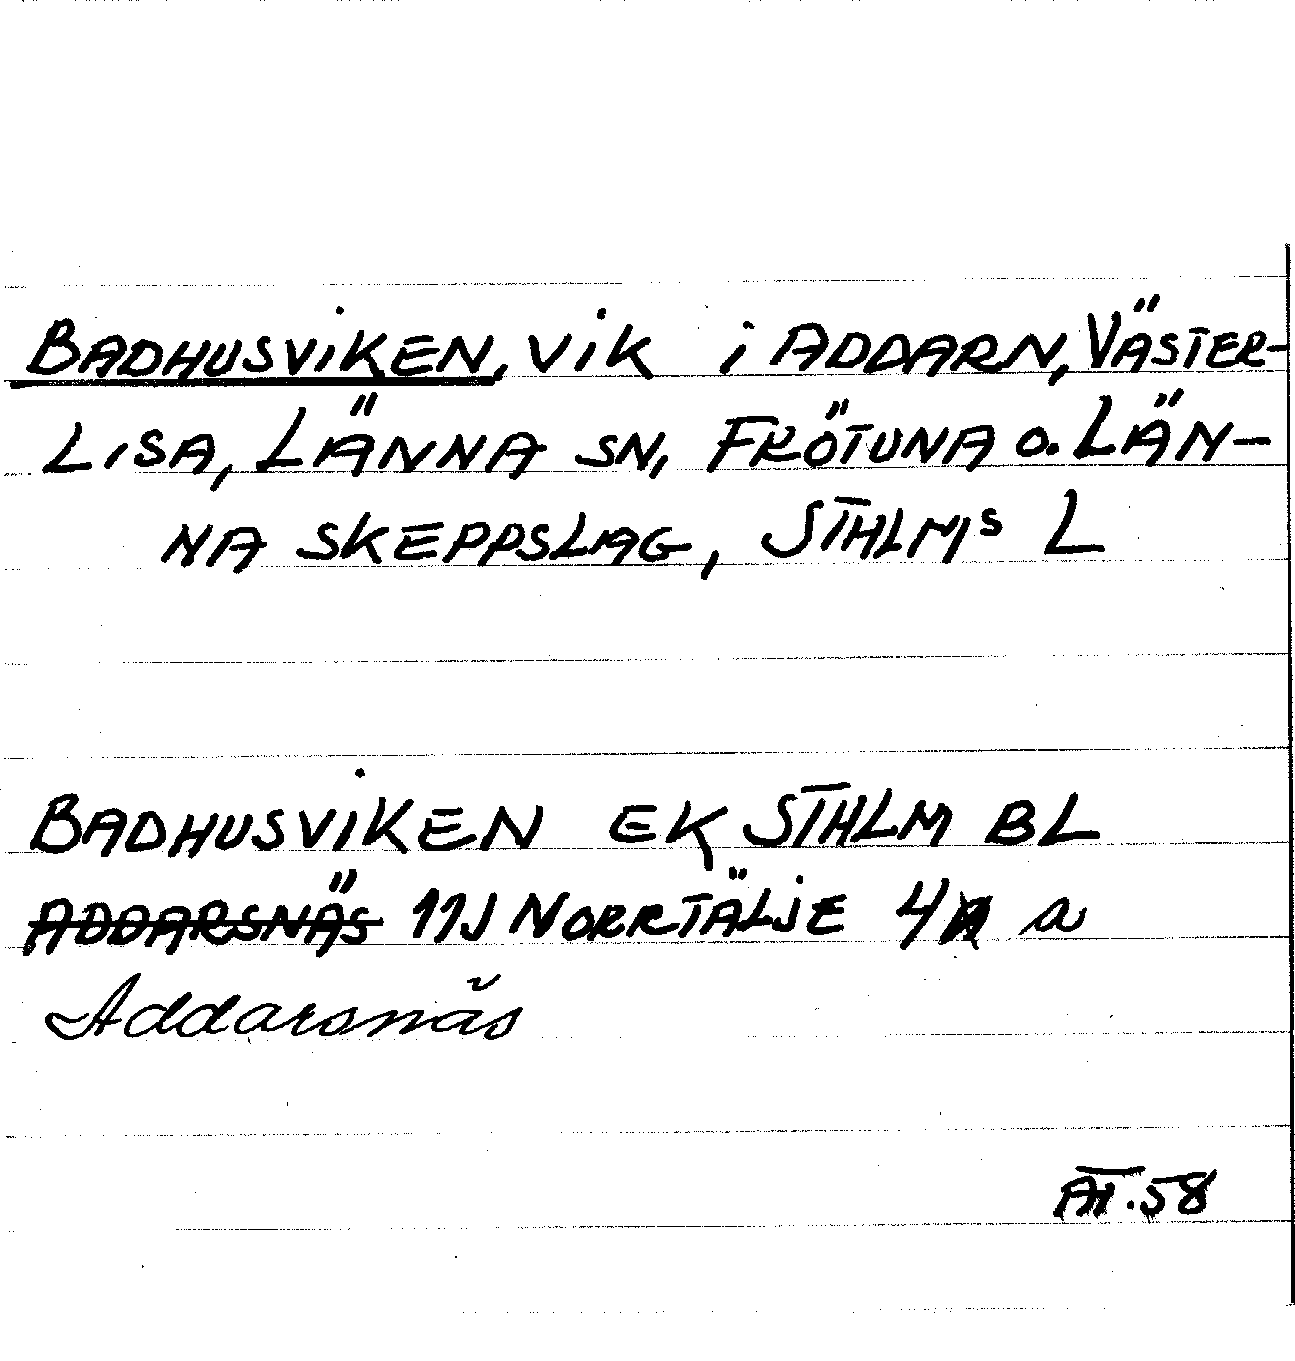 BADHUSVIKEN, VIK i ADDARN, VÄSTER-
LISA, LÄNNA SN, FRÖTUNA O. LÄN-
NA SKEPPSLAG, STHLMS L
BADHUSVIKEN EK STHLM BL
ADDARSNÄS 11J NORRTÄLJE 4 a
Addarsnäs
AT.58